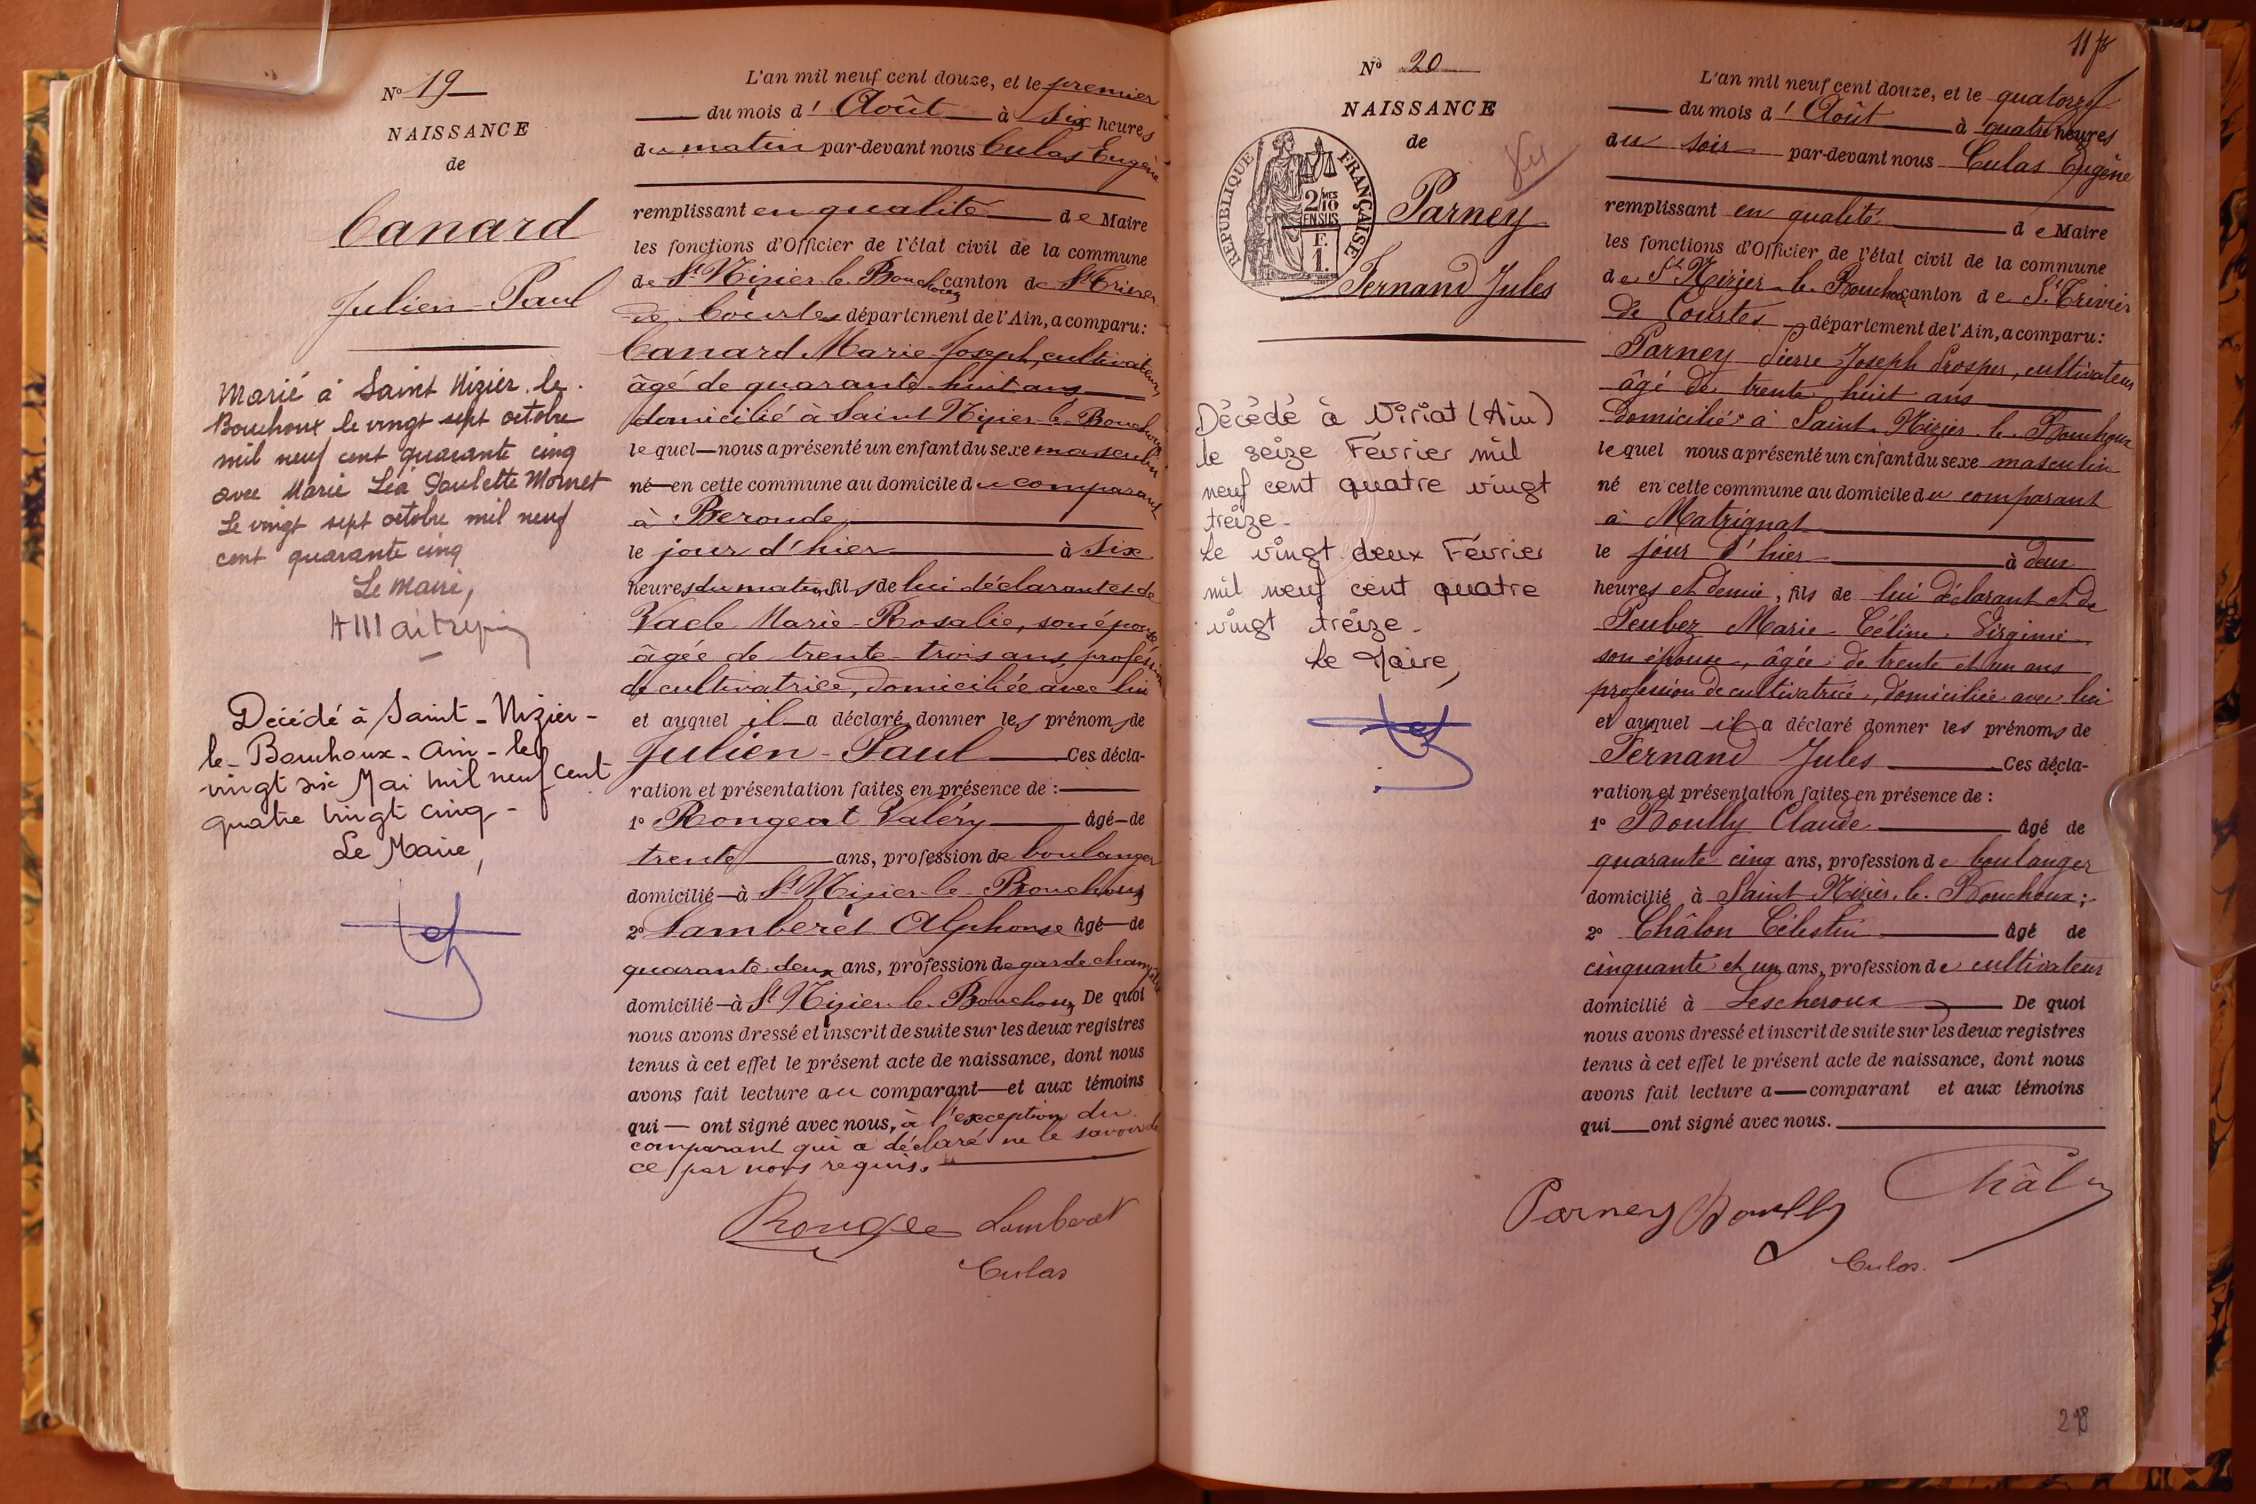 N° 19
NAISSANCE
de
Canard
Julien-Paul
Marié à Saint Nizier le
Bouchoux le vingt sept octobre
mil neuf cent quarante cinq
avec Marie Léa Paulette Mornet
Le vingt sept octobre mil neuf
cent quarante cinq
Le Maire,
Décédé à Saint-Nizier-
le-Bouhoux-Ain-le
vingt six Mai mil neuf cent
quatre vingt cinq-
Le Maire,
L'an mil neuf cent douze, et le premier
du mois d' Août à six heures
du matin par-devant nous Culas Eugène
remplissant en qualité de Maire
les fonctions d'Officier de l'état civil de la commune
de St Nizier-le-Bouchoux canton de St Trivier
de Courtes département de l'Ain, a comparu:
Canard Marie-Joseph, cultivateur,
âgé de quarante-huit ans
domicilié à Saint Nizier-le-Bouchoux
le quel nous a présenté un enfant du sexe masculin
né en cette commune au domicile du comparant
à Beronde
le jour d'hier à six
heures du matin, fils de lui déclarant et de
Vacle Marie-Rosalie, son épouse
âgée de trente-trois ans, profession
de cultivatrice, domiciliée avec lui
et auquel il a déclaré donner les prénoms de
Julien-Paul Ces décla-
ration et présentation faites en présence de :
1° Rongeat Valéry Agé de
trente ans, profession de boulanger
domicilié à St Nizier-le-Bouchoux
2° Lamberet Alphonse Agé de
quarante-deux ans, profession de garde champêtre
domicilié à St Nizier-le-Bouchoux De quoi
nous avons dressé et inscrit de suite sur les deux registres
tenus à cet effet le présent acte de naissance, dont nous
avons fait lecture au comparant et aux témoins
qui ont signé avec nous, à l'exception du
comparant qui a déclaré ne le savoir de
ce par nous requis.
Lamberet
Culas
11
N° 20
NAISSANCE
de
REPUBLIQUE FRANÇAISE
2/10 MES
EN SUS
F.
1.
Parney
Fernand Jules
Décédé à Viriat (Ain)
le seize Février mil
neuf cent quatre vingt
treize-
Le vingt deux Février
mil neuf cent quatre
vingt treize-
Le Maire,
L'an mil neuf cent douze, et le quatorze
du mois d' Août à quatre heures
du soir par-devant nous Culas Eugène
remplissant en qualité de Maire
les fonctions d'Officier de l'état civil de la commune
de St Nizier-le-Bouchoux canton de St Trivier
de Courtes département de l'Ain, a comparu:
Parney Pierre-Joseph Prosper, cultivateur
âgé de trente huit ans
domicilié à Saint-Nizier-le-Bouchoux
le quel nous a présenté un enfant du sexe masculin
né en cette commune au domicile du comparant
à Matrignat
le jour d'hier à deux
heures et demie, fils de lui déclarant et de
Peubez Marie-Céline-Virginie
son épouse, âgée de trente et un ans
profession de cultivatrice, domiciliée avec lui
et auquel il a déclaré donner les prénoms de
Fernand Jules Ces décla-
ration et présentation faites en présence de :
1° Boully Claude Agé de
quarante cinq ans, profession de boulanger
domicilié à Saint Nizier-le-Bouchoux;
2° Châlon Célestin Agé de
cinquante et un ans, profession de cultivateur
domicilié à Lescheroux De quoi
nous avons dressé et inscrit de suite sur les deux registres
tenus à cet effet le présent acte de naissance, dont nous
avons fait lecture a comparant et aux témoins
qui ont signé avec nous.
Parney Boully Châlon
Culas